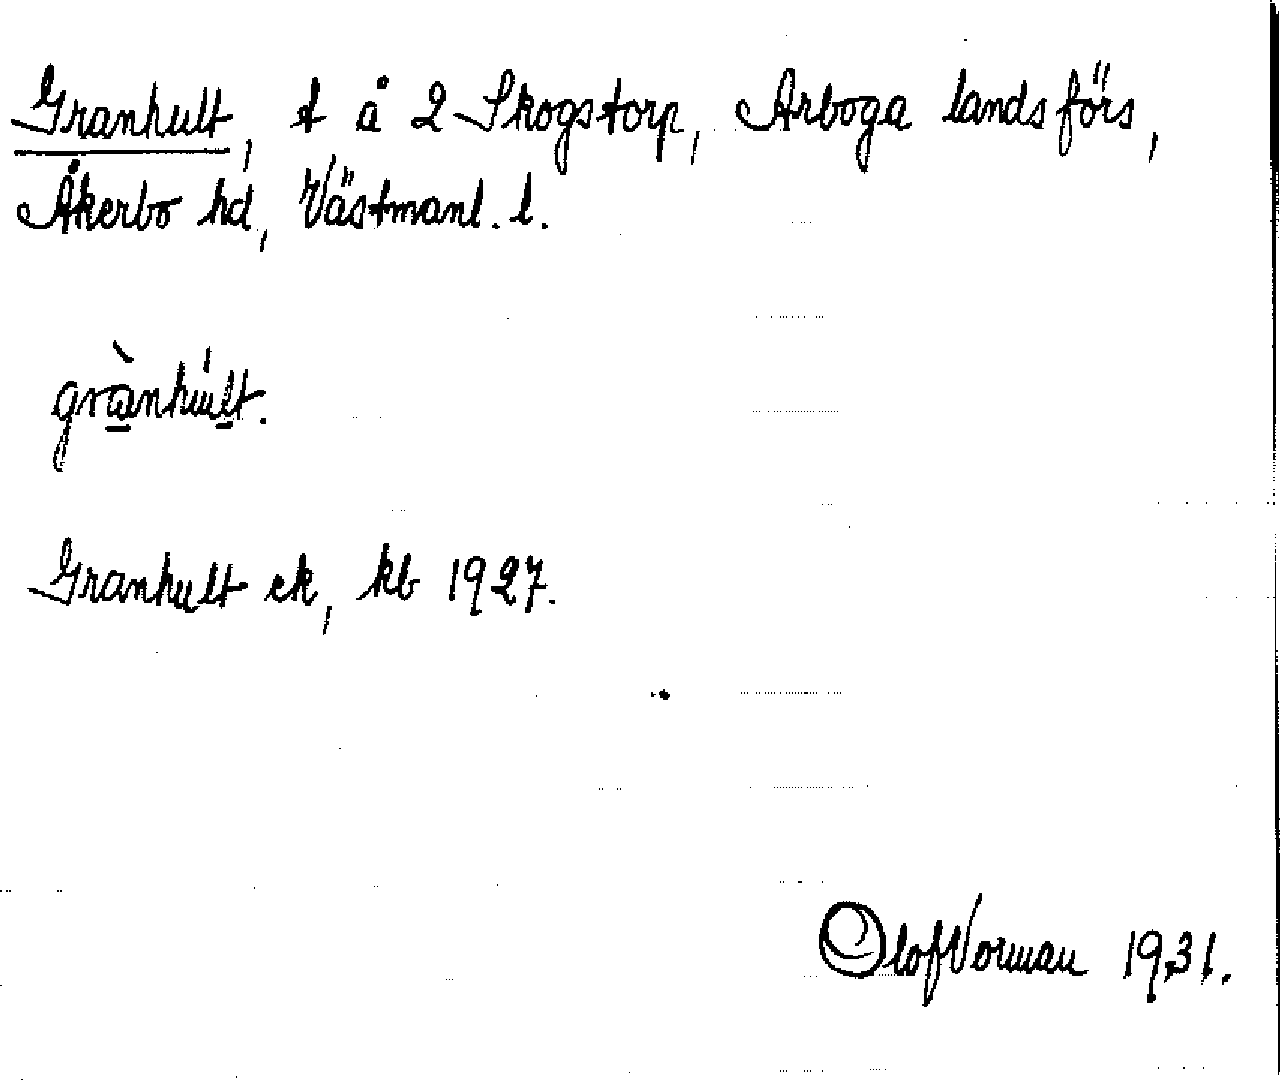 Granhult, t å 2 Skogstorp, Arboga landsförs,
Åkerbo hd, Västmanl. l.
grànhúlt.
Granhult ek, kb 1927.
Olof Vorman 1931.